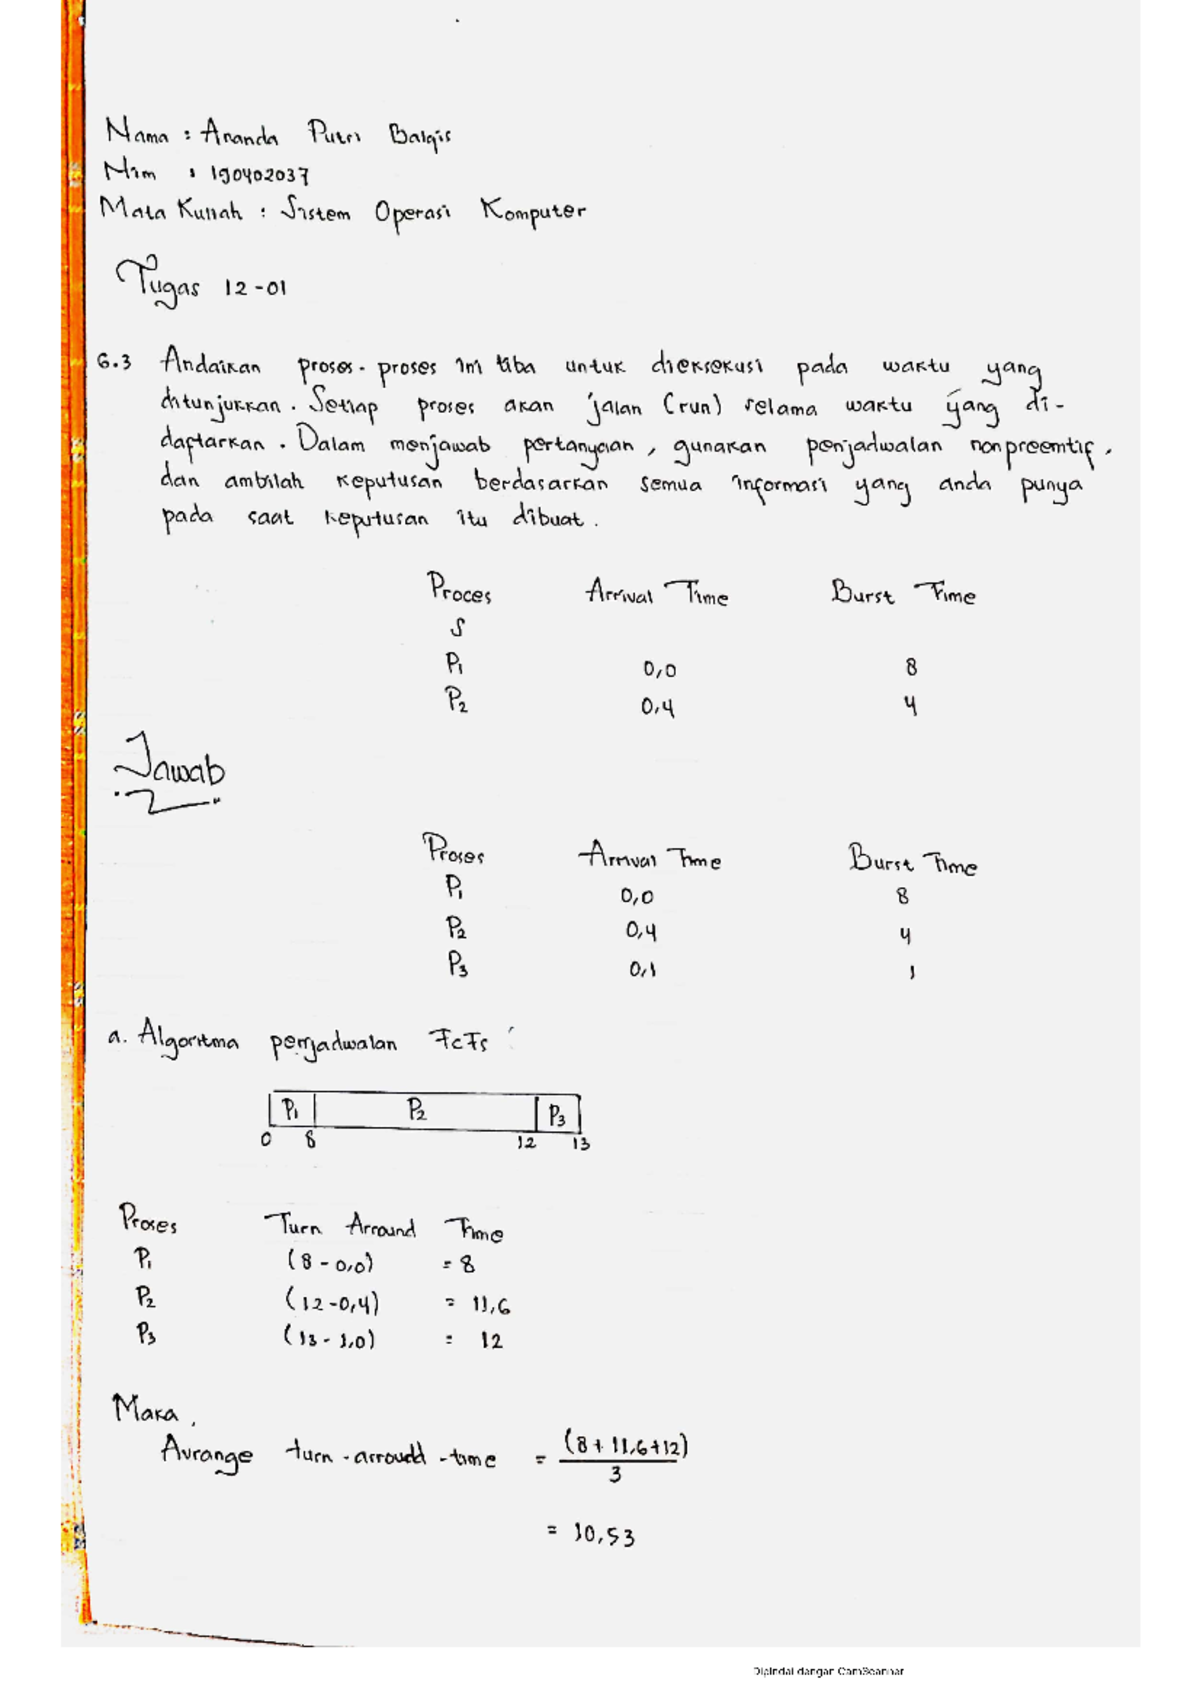 Nama : Ananda Putri Balqis
Nim : 190402037
Mata Kuliah : Sistem Operasi Komputer
Tugas 12-01
6.3 Andaikan proses-proses ini tiba untuk dieksekusi pada waktu yang
ditunjukkan. Setiap proses akan jalan (run) selama waktu yang di-
daftarkan. Dalam menjawab pertanyaan, gunakan penjadwalan nonpreemtif,
dan ambilah keputusan berdasarkan semua informasi yang anda punya
pada saat keputusan itu dibuat.
Proces Arrival Time Burst Time
S
P1 0,0 8
P2 0,4 4
Jawab
Proses Arrival Time Burst Time
P1 0,0 8
P2 0,4 4
P3 0,1 1
a. Algoritma penjadwalan FCFS :
P1 P2 P3
0 8 12 13
Proses Turn Arround Time
P1 (8-0,0) = 8
P2 (12-0,4) = 11,6
P3 (13-1,0) = 12
Maka,
Avrange turn-arroudd-time = (8+11,6+12)
3
= 10,53
Dipindai dengan CamScanner